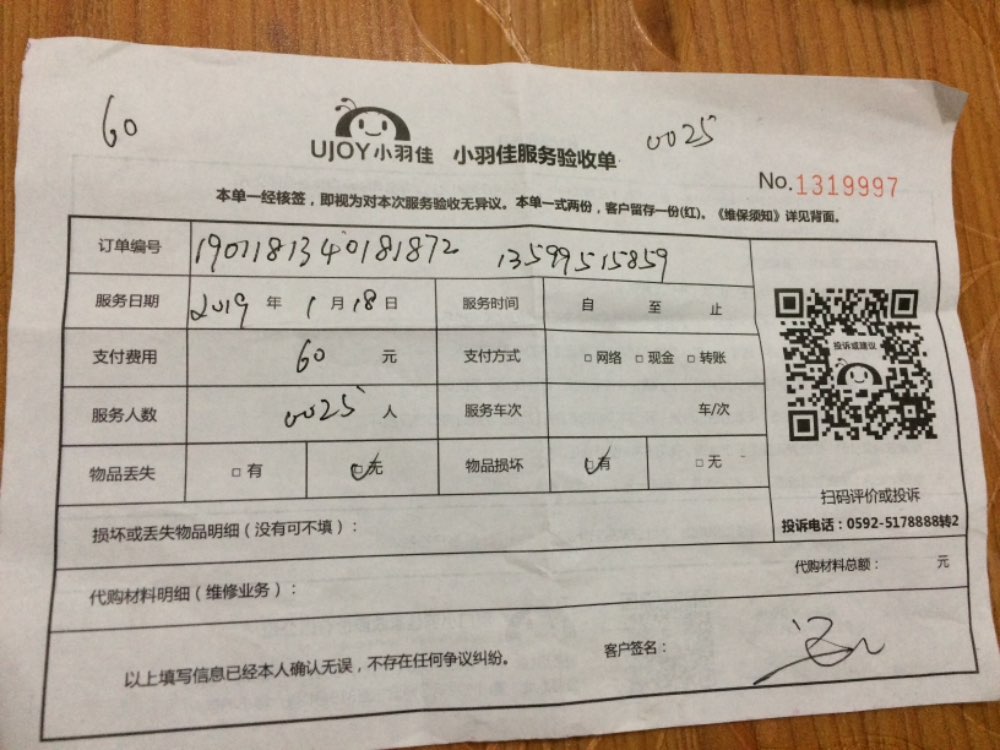 60
0025
UJOY小羽佳 小羽佳服务验收单
No.1319997
本单一经核签，即视为对本次服务验收无异议。本单一式两份，客户留存一份(红)。《维保须知》详见背面。
订单编号 1901181340181872 13599515859
服务日期 2019 年 1 月 18 日 服务时间 自 至 止
支付费用 60 元 支付方式 □ 网络 □ 现金 □ 转账
服务人数 0025 人 服务车次 车/次
物品丢失 □ 有 □ 无 物品损坏 □ 有 □ 无
投诉或建议
扫码评价或投诉
投诉电话：0592-5178888转2
损坏或丢失物品明细（没有可不填）：
代购材料明细（维修业务）： 代购材料总额： 元
以上填写信息已经本人确认无误，不存在任何争议纠纷。 客户签名：